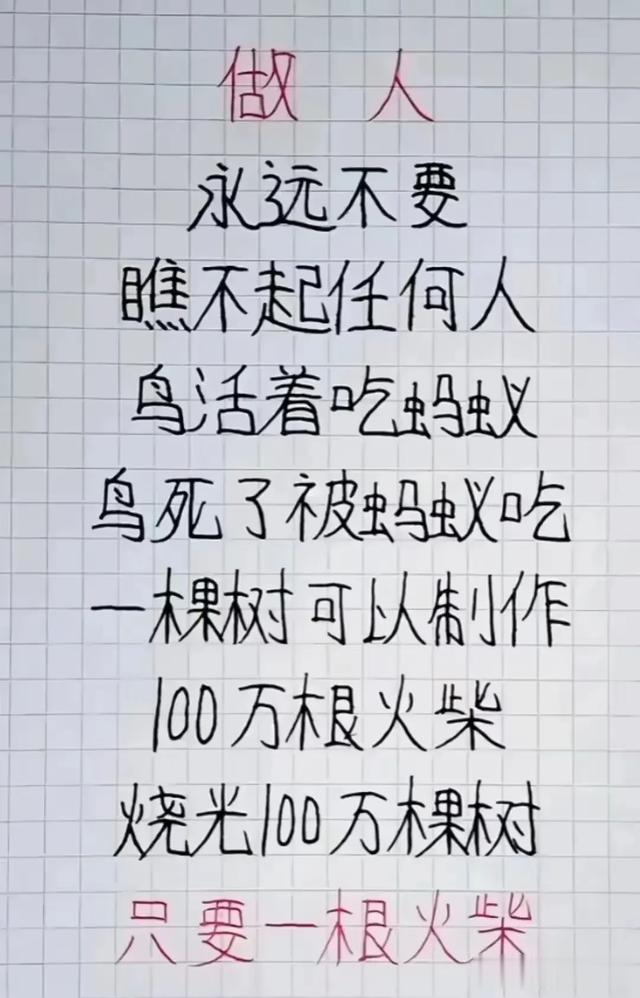 做人
永远不要
瞧不起任何人
鸟活着吃蚂蚁
鸟死了被蚂蚁吃
一棵树可以制作
100万根火柴
烧光100万棵树
只要一根火柴